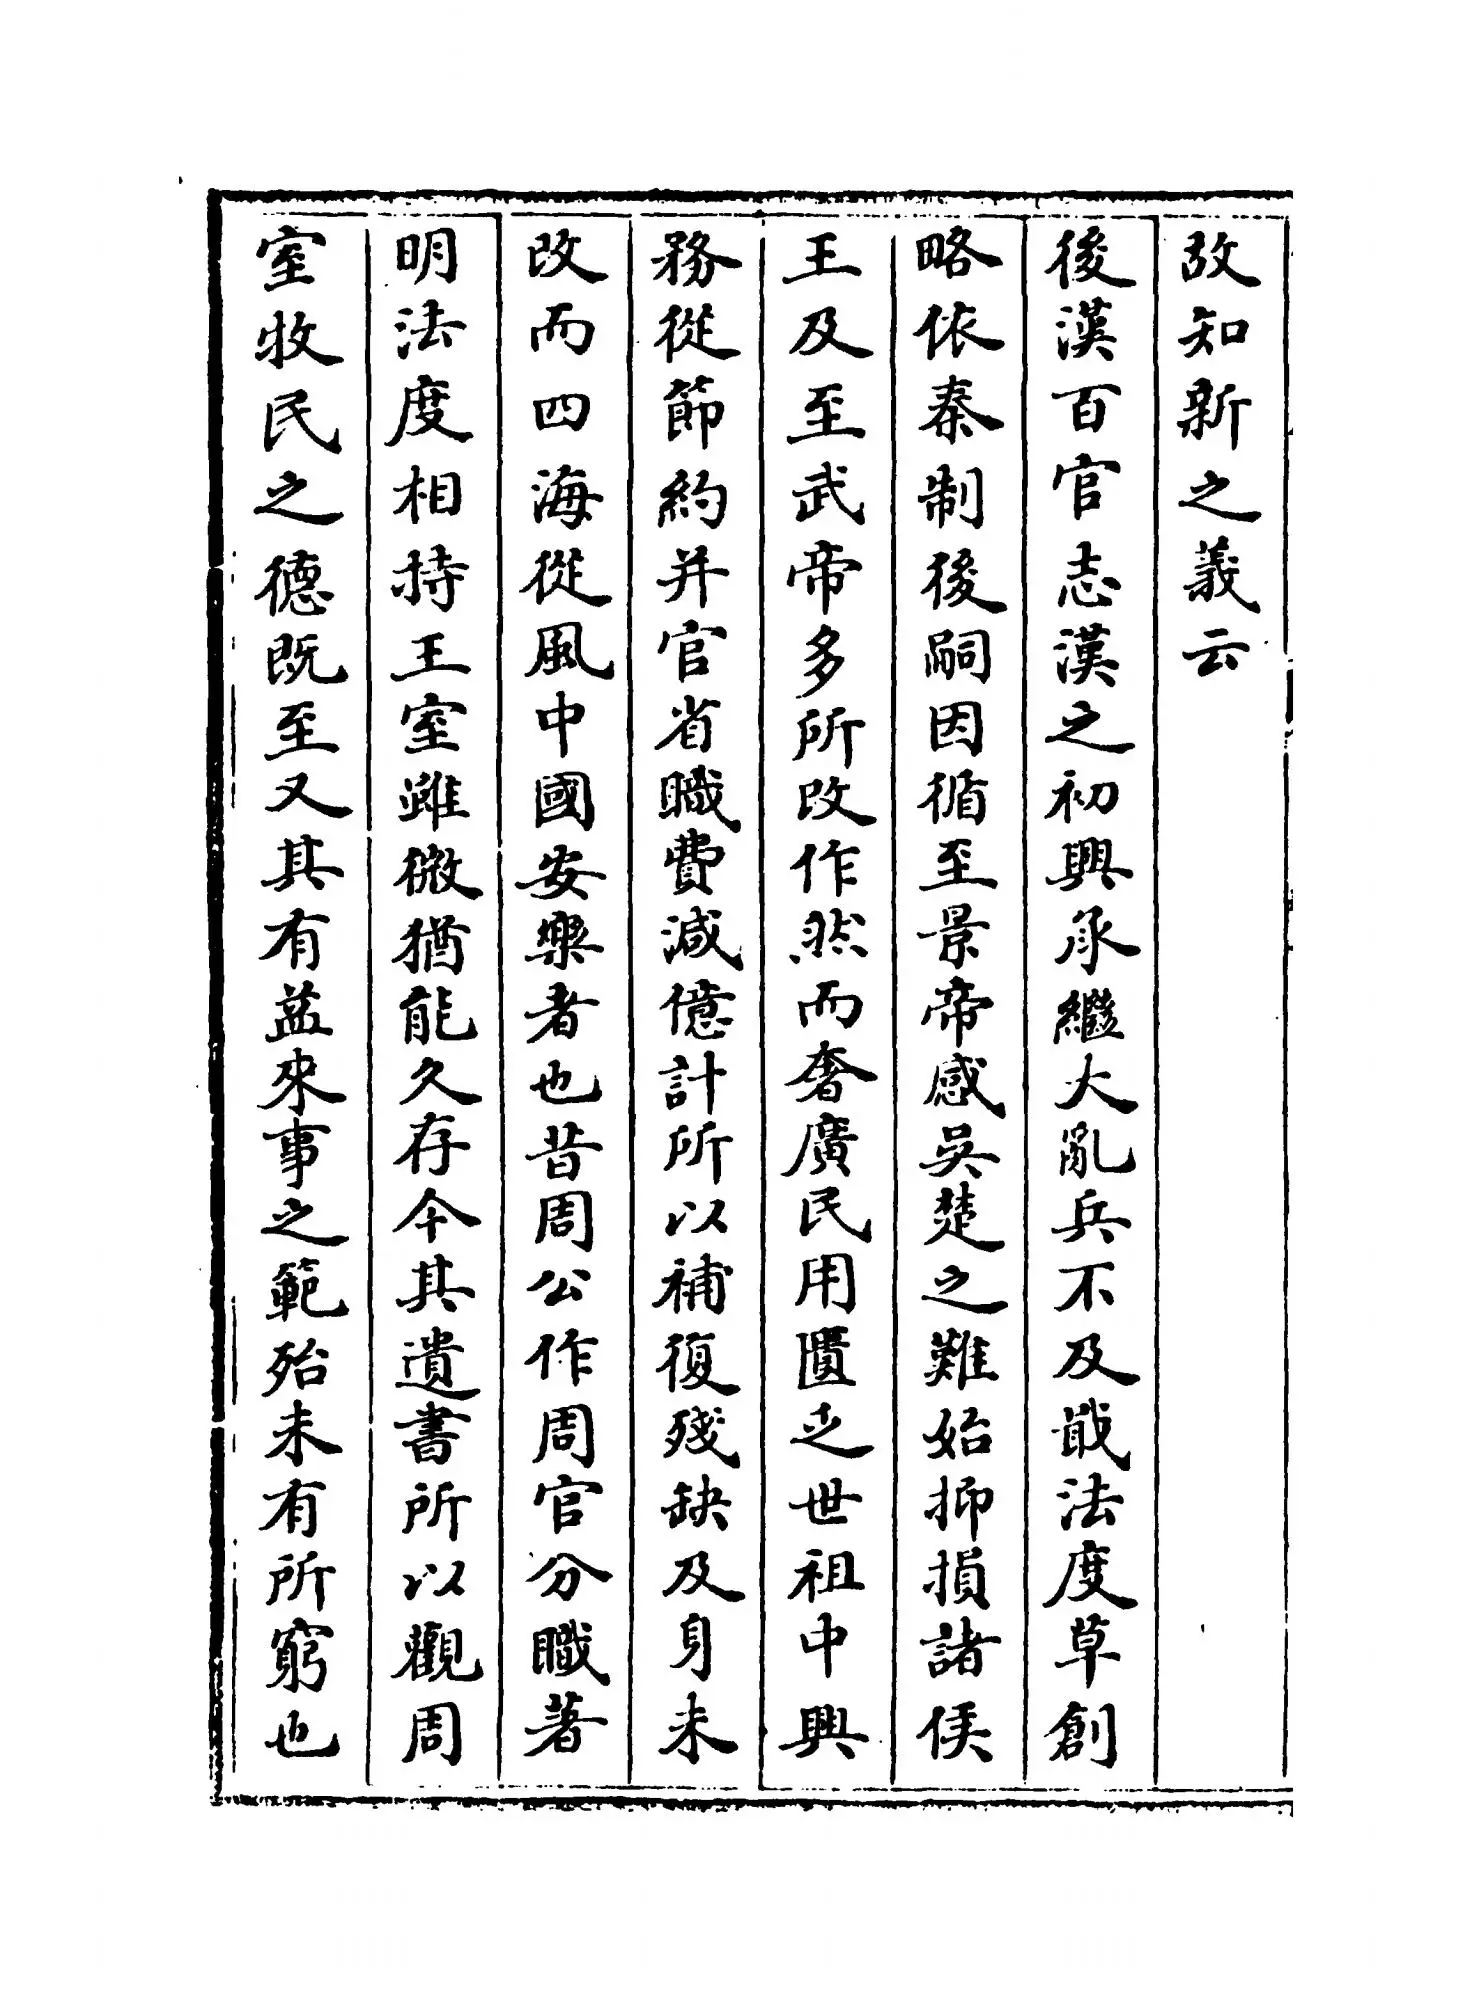 故知新之義云
後漢百官志漢之初興承繼大亂兵不及戢法度草創
略依秦制後嗣因循至景帝感吳楚之難始抑損諸侯
王及至武帝多所改作然而奢廣民用匱乏世祖中興
務從節約并官省職費減億計所以補復殘缺及身未
改而四海從風中國安樂者也昔周公作周官分職著
明法度相持王室雖微猶能久存今其遺書所以觀周
室牧民之德既至又其有益來事之範殆未有所窮也